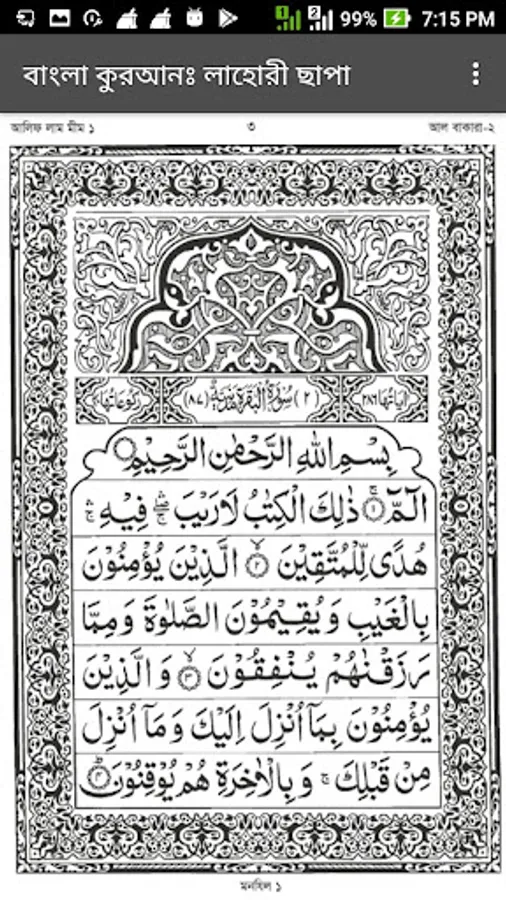 99% 7:15 PM
বাংলা কুরআনঃ লাহোরী ছাপা
আলিফ লাম মীম ১ ৩ আল বাকারা-২
اٰیَاتُهَا ٢٨٦ (٢) سُوْرَةُ الْبَقَرَةِ مَدَنِيَّةٌ (٨٧) رُكُوْعَاتُهَا
بِسْمِ اللّٰهِ الرَّحْمٰنِ الرَّحِيْمِ
الٓمّٓ ۚ﴿١﴾ ذٰلِكَ الْكِتٰبُ لَا رَيْبَ ۖۛ فِيْهِ ۛۚ
هُدًى لِّلْمُتَّقِيْنَ ۙ﴿٢﴾ الَّذِيْنَ يُؤْمِنُوْنَ
بِالْغَيْبِ وَيُقِيْمُوْنَ الصَّلٰوةَ وَمِمَّا
رَزَقْنٰهُمْ يُنْفِقُوْنَ ۙ﴿٣﴾ وَالَّذِيْنَ
يُؤْمِنُوْنَ بِمَاۤ اُنْزِلَ اِلَيْكَ وَمَاۤ اُنْزِلَ
مِنْ قَبْلِكَ ۚ وَبِالْاٰخِرَةِ هُمْ يُوْقِنُوْنَ ؕ﴿٤﴾
মনযিল ১